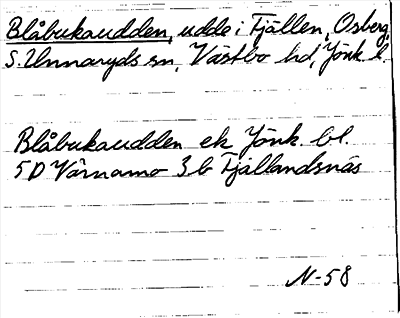 Blåbukaudden, udde i Fjällen, Osberg,
S. Unnaryds sn, Västbo hd, Jönk. l.
Blåbukaudden ek Jönk. bl.
5D Värnamo 3b Fjällandsnäs
N-58